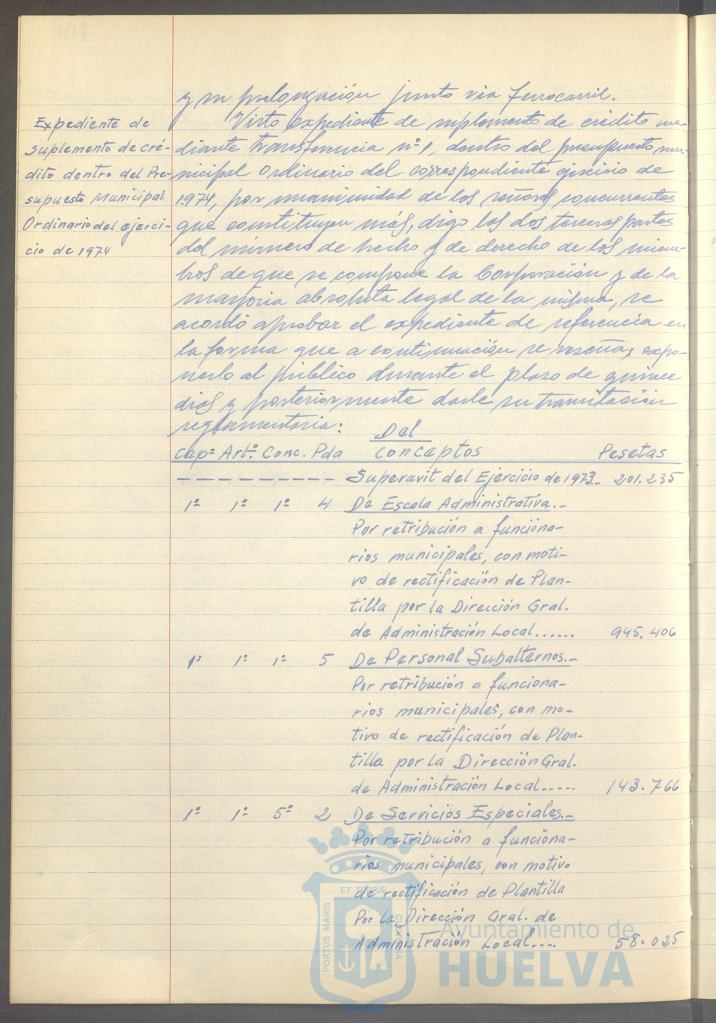 y su prolongación junto via ferrocarril.
Expediente de
suplemento de cré-
dito dentro del Pre-
supuesto Municipal
Ordinario del ejerci-
cio de 1974
Visto expediente de suplemento de crédito me-
diante transferencia nº 1, dentro del presupuesto mu-
nicipal Ordinario del correspondiente ejercicio de
1974, por unanimidad de los señores concurrentes
que constituyen más, digo las dos terceras partes
del número de hecho y de derecho de los miem-
bros de que se compone la Corporación y de la
mayoria absoluta legal de la misma, se
acordó aprobar el expediente de referencia en
la forma que a continuación se reseña, expo-
nerlo al público durante el plazo de quince
dias y posteriormente darle su tramitación
reglamentaria:
Del
Capº Artº. Conc. Pda Conceptos Pesetas
---------- Superavit del Ejercicio de 1973.- 201.235
1º 1º 1º 4 De Escala Administrativa.-
Por retribución a funciona-
rios municipales, con moti-
vo de rectificación de Plan-
tilla por la Dirección Gral.
de Administración Local...... 945.406
1º 1º 1º 5 De Personal Subalternos.-
Por retribución a funciona-
rios municipales, con mo-
tivo de rectificación de Plan-
tilla por la Dirección Gral.
de Administración Local..... 143.766
1º 1º 5º 2 De Servicios Especiales.-
Por retribución a funciona-
rios municipales, con motivo
de rectificación de Plantilla
Por la Dirección Gral. de
Administración Local.... 58.025
PORTUS MARIS
ET TERRAE
CUSTODIA
Ayuntamiento de
HUELVA